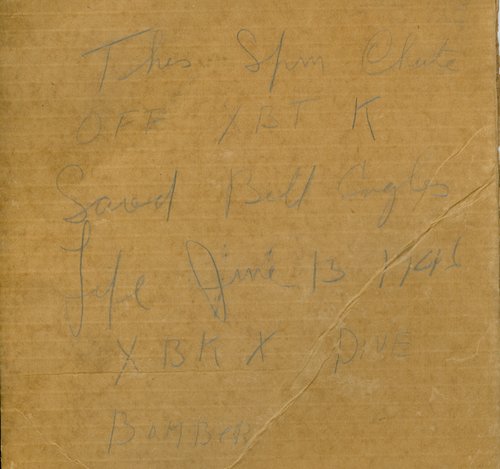 This Spin Chute
OFF XBT K
Saved Bill
Life June 13
XBK X DIVE
BOMBER